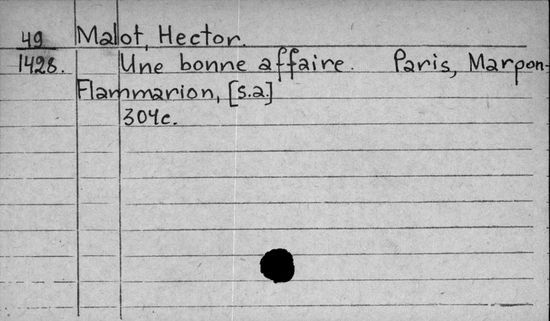 49 Malot, Hector.
1428. Une bonne affaire. Paris, Marpon-
Flammarion, [s.a.]
304c.